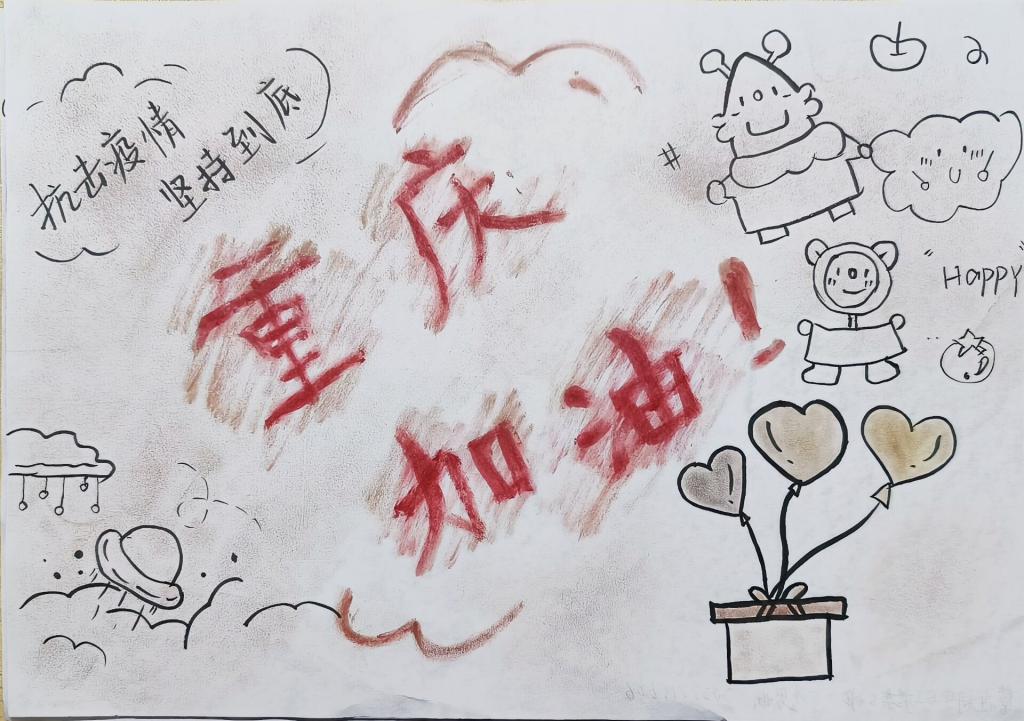 抗击疫情
坚持到底
重庆
加油!
"Happy"